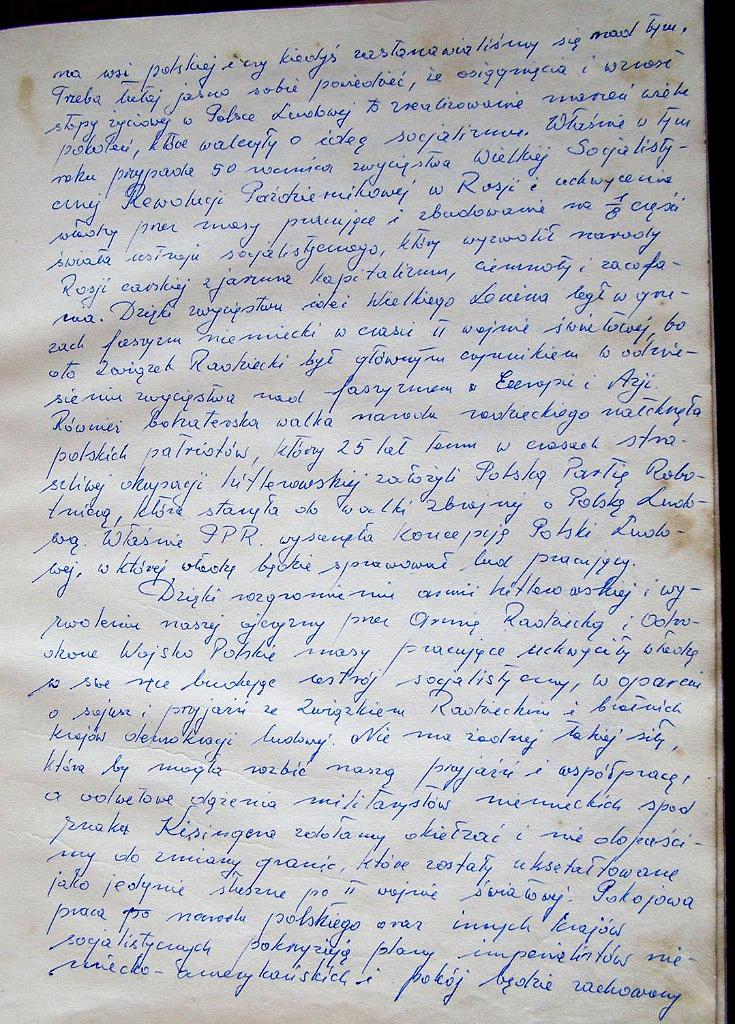 na wsi polskiej i czy kiedyś zastanawialiśmy się nad tym.
Trzeba tutaj jasno sobie powiedzieć, że osiągnięcia i wzrost
stopy życiowej w Polsce Ludowej to zrealizowanie marzeń wielu
pokoleń, które walczyły o ideę socjalizmu. Właśnie w tym
roku przypada 50 rocznica zwycięstwa Wielkiej Socjalisty-
cznej Rewolucji Październikowej w Rosji i uchwycenia
władzy przez masy pracujące i zbudowanie na 1/6 części
świata ustroju socjalistycznego, który wyzwolił narody
Rosji carskiej z jarzma kapitalizmu, ciemnoty i zacofa-
nia. Dzięki zwycięstwu idei Wielkiego Lenina legł w gru-
zach faszyzm niemiecki w czasie II wojnie światowej, bo
oto Związek Radziecki był głównym czynnikiem w odnie-
sieniu zwycięstwa nad faszyzmem w Europie i Azji.
Również bohaterska walka narodu radzieckiego natchnęła
polskich patriotów, który 25 lat temu w czasach stra-
szliwej okupacji hitlerowskiej założyli Polską Partię Robo-
tniczą, która stanęła do walki zbrojnej o Polskę Ludo-
wą. Właśnie PPR. wysunęła koncepcję Polski Ludo-
wej, w której władzę będzie sprawował lud pracujący.
Dzięki rozgromieniu armii hitlerowskiej i wy-
zwoleniu naszej ojczyzny przez Armię Radziecką i Odro-
dzone Wojsko Polskie masy pracujące uchwyciły władzę
w swe ręce budując ustrój socjalistyczny, w oparciu
o sojusz i przyjaźń ze Związkiem Radzieckim i bratnich
krajów demokracji ludowej. Nie ma żadnej takiej siły,
która by mogła rozbić naszą przyjaźń i współpracę,
a odwetowe dążenia militarystów niemieckich spod
znaku Kisingera zdołamy okiełzać i nie dopuści-
my do zmiany granic, które zostały ukształtowane
jako jedynie słuszne po II wojnie światowej. Pokojowa
praca narodu polskiego oraz innych krajów
socjalistycznych pokrzyżują plany imperialistów nie-
miecko-amerykańskich i pokój będzie zachowany